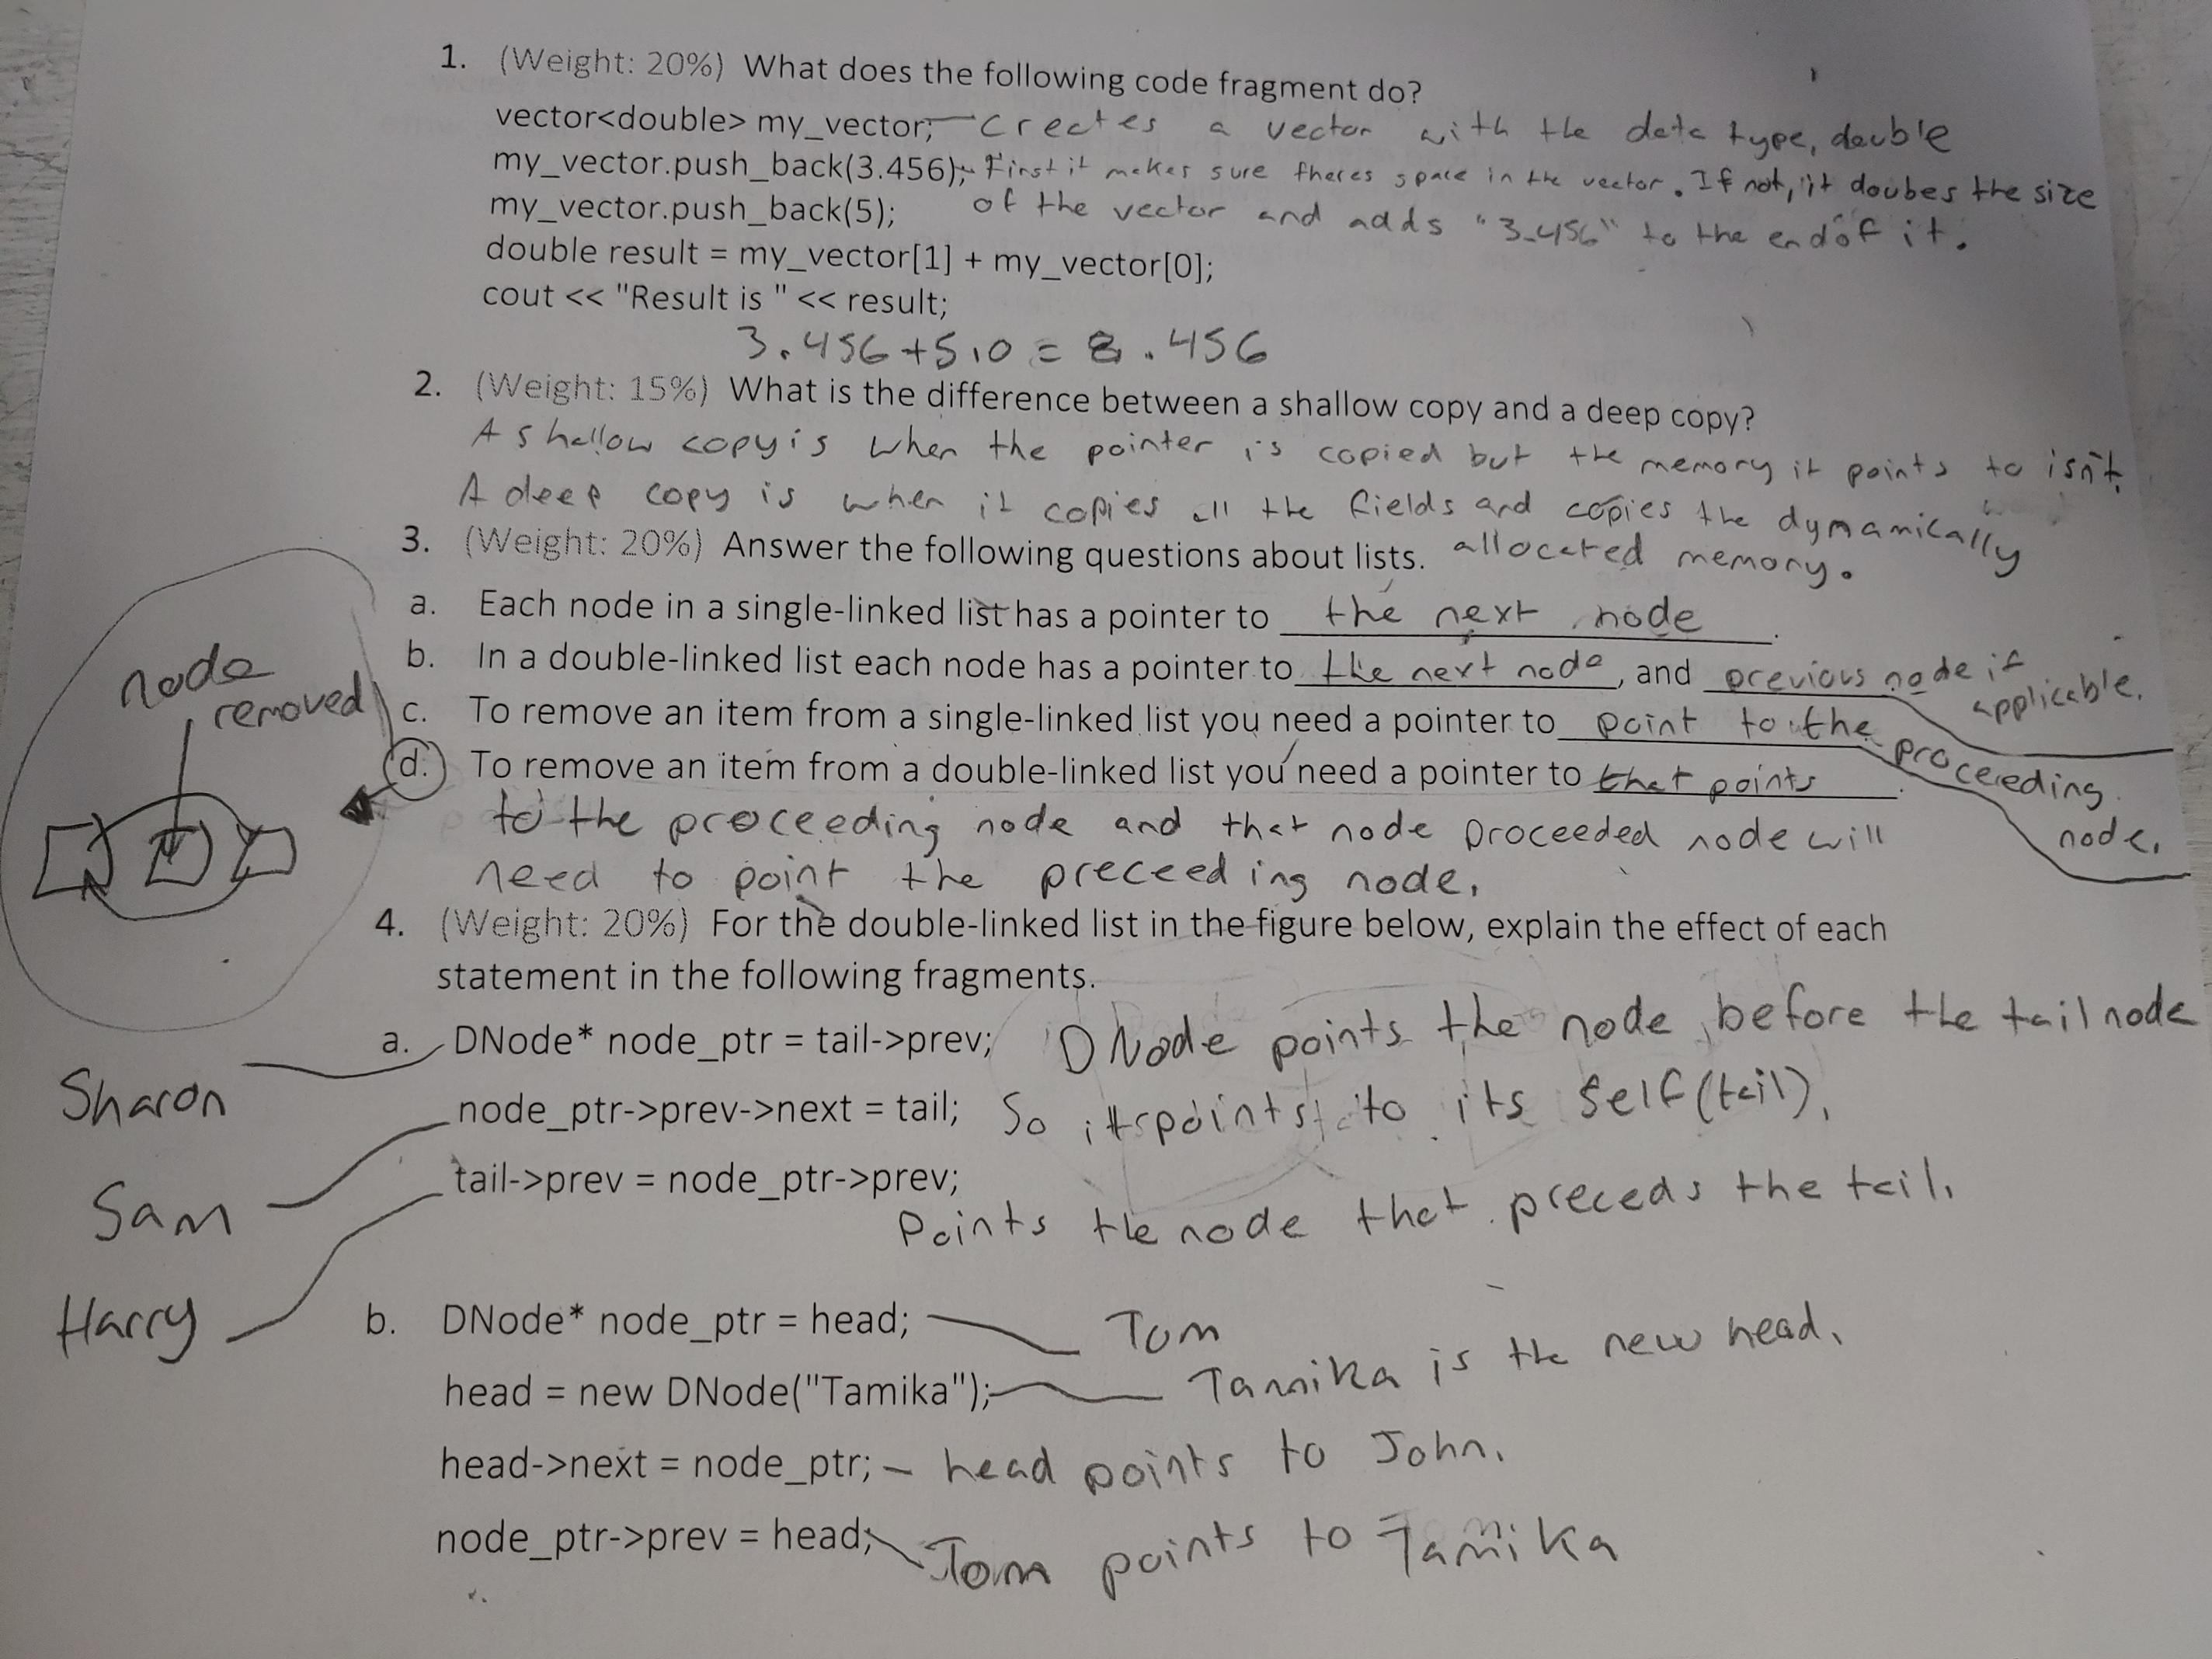 1. (Weight: 20%) What does the following code fragment do?
vector<double> my_vector; Creates a vector with the data type, double
my_vector.push_back(3.456); First it makes sure theres space in the vector. If not, it doubes the size
my_vector.push_back(5); of the vector and adds "3.456" to the end of it.
double result = my_vector[1] + my_vector[0];
cout << "Result is " << result;
3.456 + 5.0 = 8.456
2. (Weight: 15%) What is the difference between a shallow copy and a deep copy?
A shallow copy is when the pointer is copied but the memory it points to isn't.
A deep copy is when it copies all the fields and copies the dynamically
allocated memory.
3. (Weight: 20%) Answer the following questions about lists.
a. Each node in a single-linked list has a pointer to the next node.
b. In a double-linked list each node has a pointer to the next node, and previous node if
applicable.
c. To remove an item from a single-linked list you need a pointer to point to the
proceeding
node.
d. To remove an item from a double-linked list you need a pointer to that points.
to the proceeding node and that node proceeded node will
need to point the preceeding node.
node
removed
4. (Weight: 20%) For the double-linked list in the figure below, explain the effect of each
statement in the following fragments.
a. DNode* node_ptr = tail->prev; DNode points the node before the tail node
Sharon
node_ptr->prev->next = tail; So it points to its self (tail).
Sam
tail->prev = node_ptr->prev;
Points the node that preceds the tail.
Harry
b. DNode* node_ptr = head; Tom
head = new DNode("Tamika"); Tamika is the new head.
head->next = node_ptr; - head points to John.
node_ptr->prev = head; Tom points to Tamika